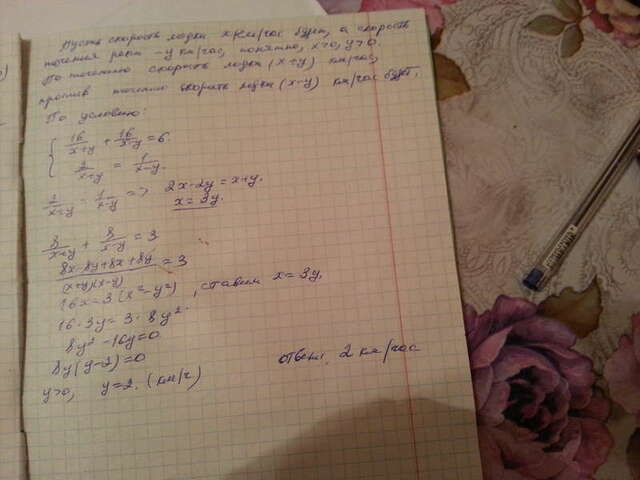 Пусть скорость лодки x км/час будет, а скорость
течения реки - y км/час, понятно, x>0, y>0.
По течению скорость лодки (x+y) км/час,
против течению скорость лодки (x-y) км/час будет.
По условию:
{ 16/(x+y) + 16/(x-y) = 6
2/(x+y) = 1/(x-y).
2/(x+y) = 1/(x-y) => 2x-2y = x+y.
x = 3y.
8/(x+y) + 8/(x-y) = 3
(8x-8y+8x+8y)/((x+y)(x-y)) = 3
16x = 3(x²-y²), ставим x = 3y,
16·3y = 3·8y².
8y² - 16y = 0
8y(y-2) = 0
y>0, y = 2. (км/ч)
ответ. 2 км/час